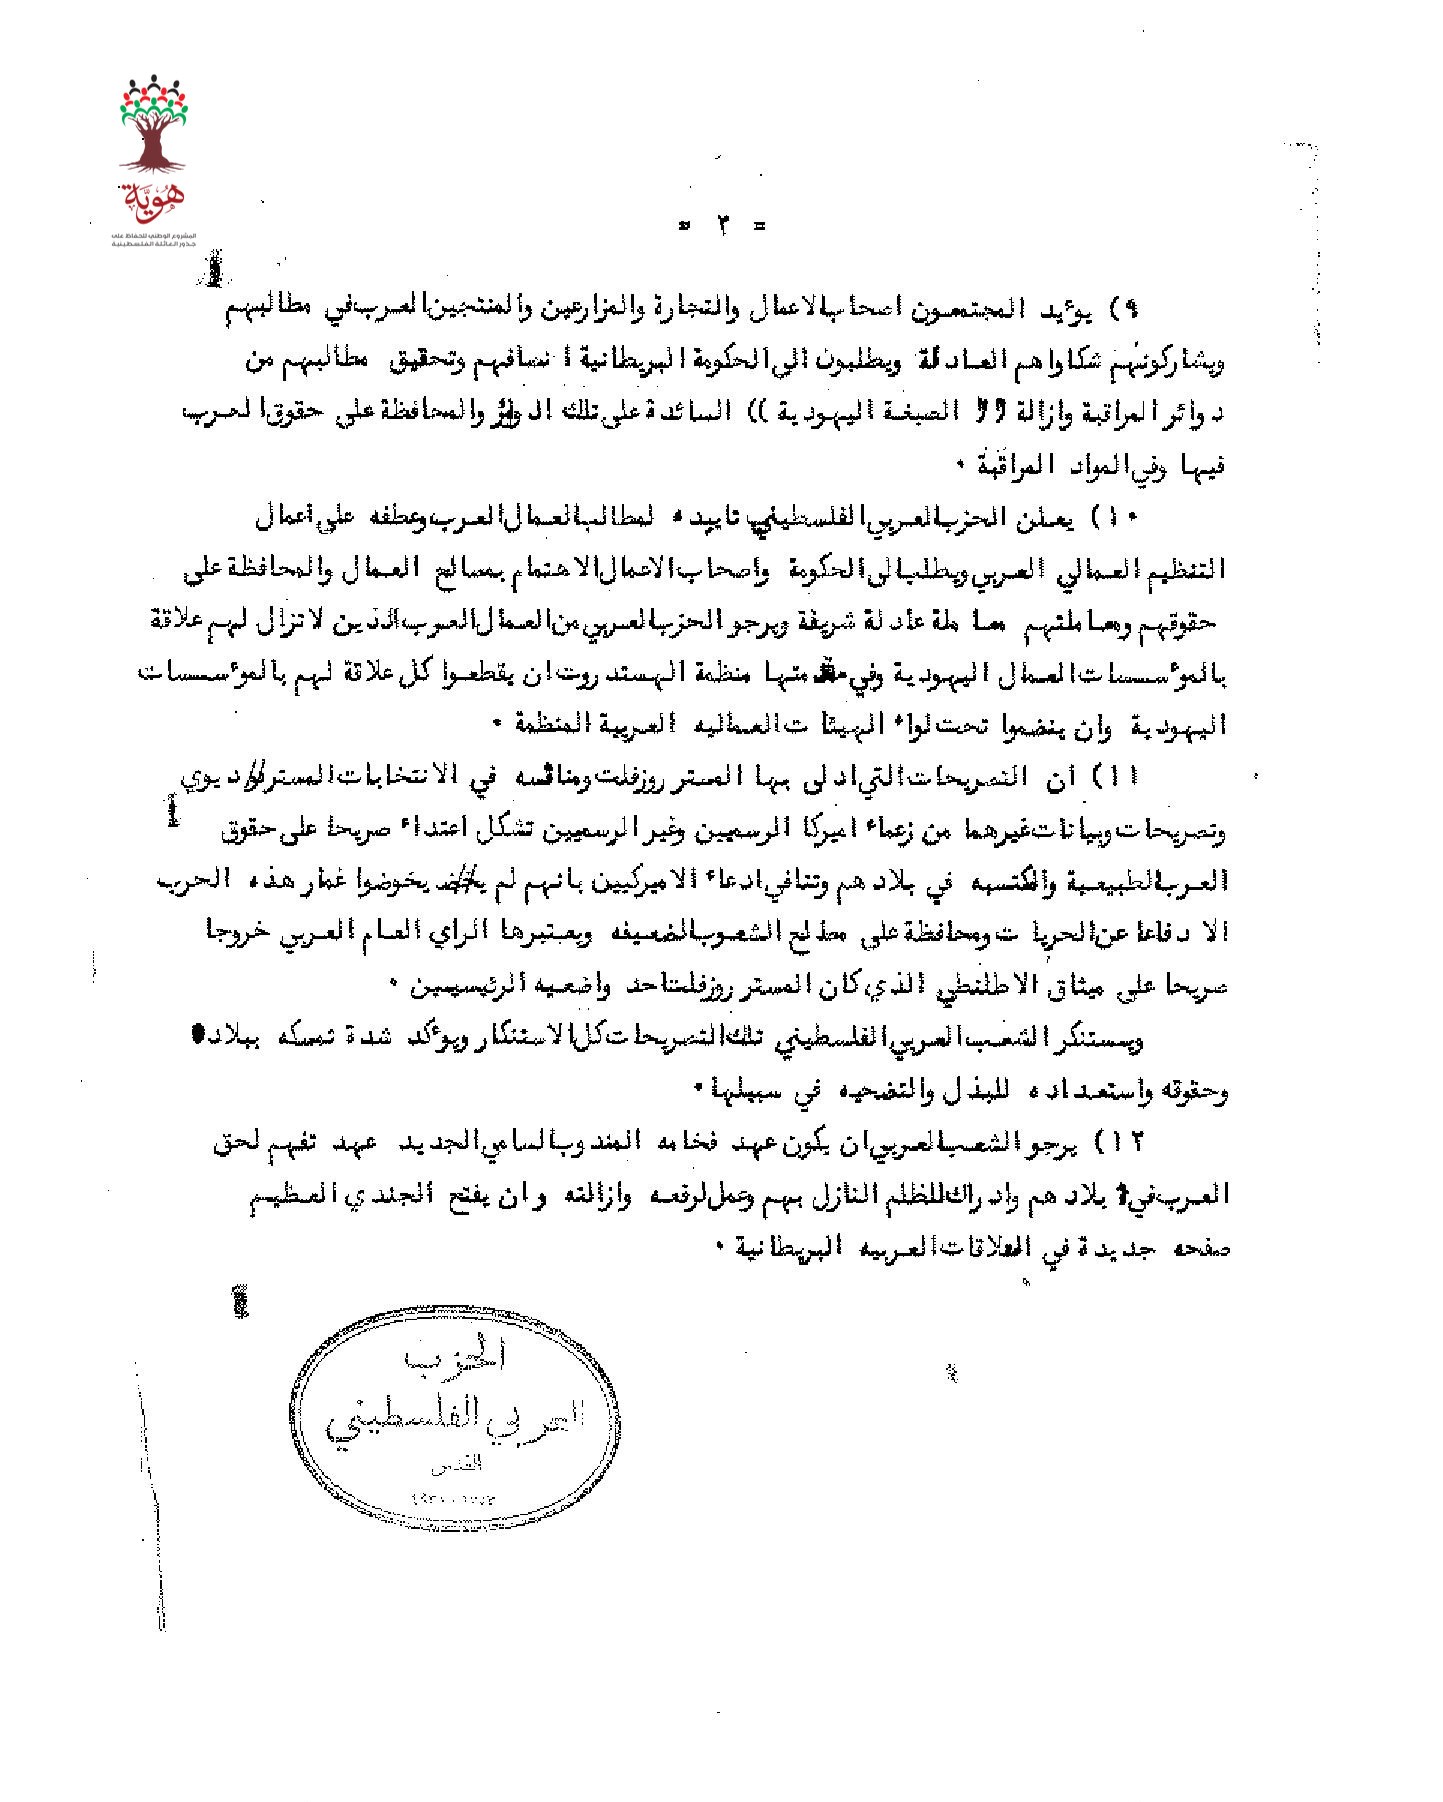 هوية
المشروع الوطني للحفاظ على
جذور العائلة الفلسطينية
= ٣ =
٩) يوءيد المجتمعون اصحاب الاعمال والتجارة والمزارعين والمنتجين العرب في مطالبهم
ويشاركونهم شكاواهم العادلة ويطلبون الى الحكومة البريطانية انصافهم وتحقيق مطالبهم من
دوائر المراقبة وازالة (( الصبغة اليهودية )) السائدة على تلك الدوائر والمحافظة على حقوق العرب
فيها وفي المواد المراقبة .
١٠) يعلن الحزب العربي الفلسطيني تاييده لمطالب العمال العرب وعطفه على اعمال
التنظيم العمالي العربي ويطلب الى الحكومة واصحاب الاعمال الاهتمام بمصالح العمال والمحافظة على
حقوقهم ومعاملتهم معاملة عادلة شريفة ويرجو الحزب العربي من العمال العرب الذين لا تزال لهم علاقة
بالموءسسات العمال اليهودية وفي مقدمتها منظمة الهستدروت ان يقطعوا كل علاقة لهم بالموءسسات
اليهودية وان ينضموا تحت لواء الهيئات العماليه العربية المنظمة .
١١) ان التصريحات التي ادلى بها المستر روزفلت ومنافسه في الانتخابات المستر ديوي
وتصريحات وبيانات غيرهما من زعماء اميركا الرسميين وغير الرسميين تشكل اعتداء صريحا على حقوق
العرب الطبيعية والمكتسبه في بلادهم وتنافي ادعاء الاميركيين بانهم لم يخوضوا غمار هذه الحرب
الا دفاعا عن الحريات ومحافظة على مصالح الشعوب الضعيفه ويعتبرها الراي العام العربي خروجا
صريحا على ميثاق الاطلنطي الذي كان المستر روزفلت احد واضعيه الرئيسيين .
ويستنكر الشعب العربي الفلسطيني تلك التصريحات كل الاستنكار ويوءكد شدة تمسكه ببلاده
وحقوقه واستعداده للبذل والتضحيه في سبيلها .
١٢) يرجو الشعب العربي ان يكون عهد فخامه المندوب السامي الجديد عهد تفهم لحق
العرب في بلادهم وادراك للظلم النازل بهم وعمل لرفعه وازالته وان يفتح الجندي العظيم
صفحه جديدة في العلاقات العربيه البريطانية .
الحزب
العربي الفلسطيني
القدس